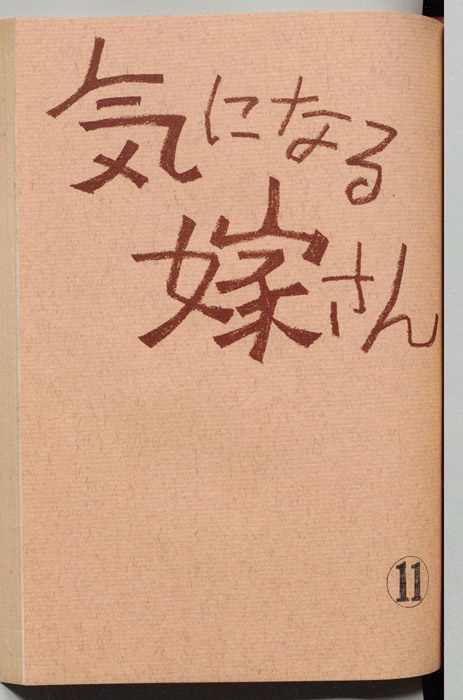 気になる
嫁さん
11